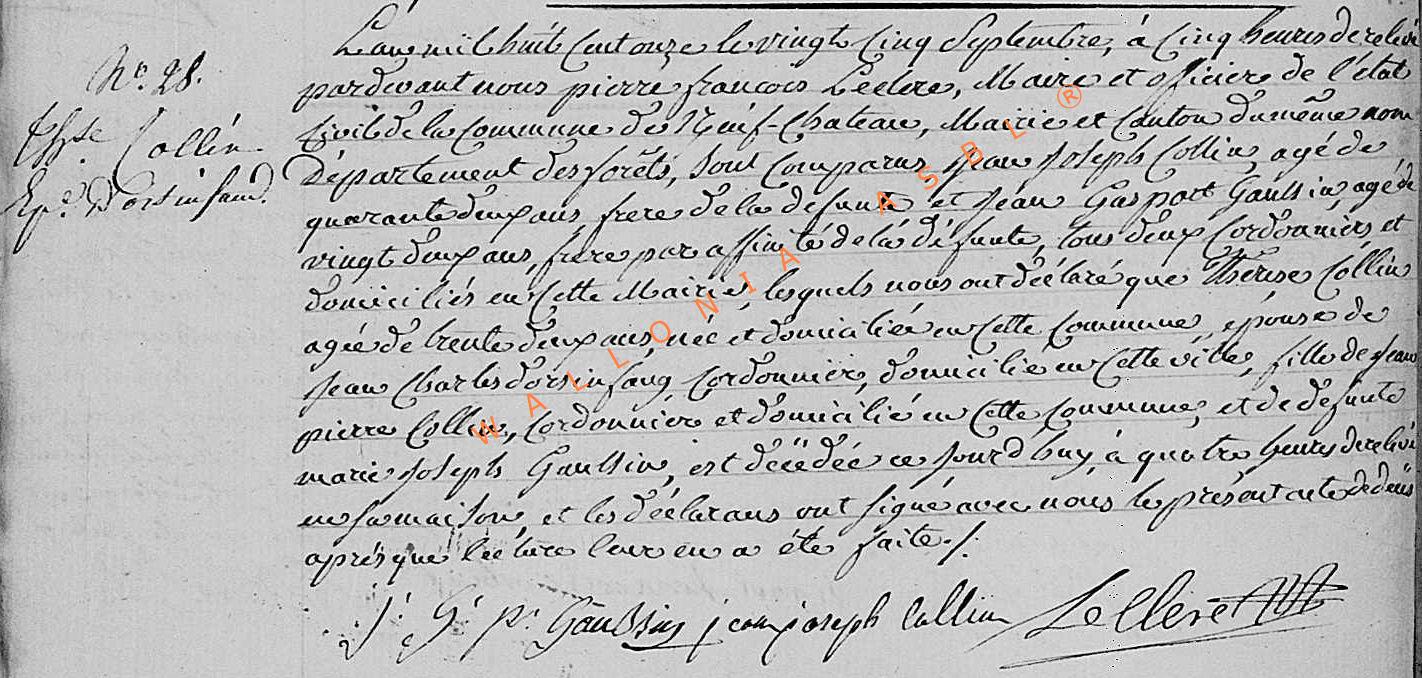 N.o 28.
Th.se Collin
Ep.e Dorsinfand.
L'an mil huit Cent onze le vingt Cinq Septembre, à Cinq heures de relevé
pardevant nous pierre françois Leclere, Maire et officier de l'état
Civil de la Commune de Neuf-Chateau, Mairie et Canton du même nom
Département des forêts, sont Comparus Jean Joseph Collin, agé de
quarante deux ans frere de la défunte et Jean Gaspart Gaussin, agé de
vingt deux ans, frere par affinité de la défunte, tous deux Cordonniers et
domiciliés en Cette Mairie, lesquels nous ont déclaré que Thérese Collin
agée de trente deux ans, née et domiciliée en Cette Commune, epouse de
Jean Charles dorsinfang, Cordonnier, domicilié en Cette ville, fille de Jean
pierre Collin, Cordonnier et domicilié en Cette Commune, et de défunte
marie Joseph Gaussin, est décédée ce jourd'huy, à quatre heures de relevé
en sa maison, et les déclarans ont signé avec nous le présent acte de décès
après que lecture leur en a été faite ./.
J. G. p. Gaussin jean joseph Collin Leclere
WALLONIA ASBL ®